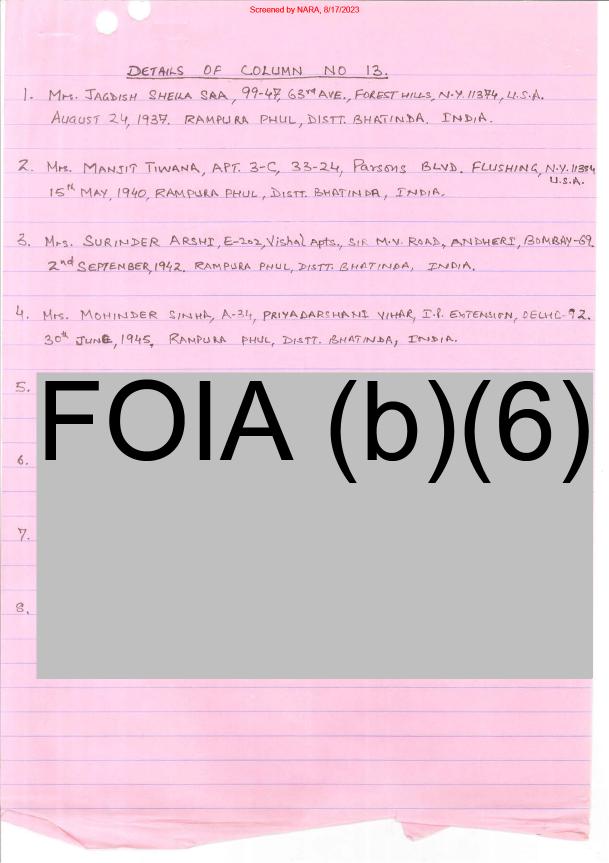 Screened by NARA, 8/17/2023
DETAILS OF COLUMN NO 13.
1. Mrs. JAGDISH SHEILA SAA, 99-47, 63rd AVE., FOREST HILLS, N.Y. 11374, U.S.A.
AUGUST 24, 1937. RAMPURA PHUL, DISTT. BHATINDA. INDIA.
2. Mrs. MANJIT TIWANA, APT. 3-C, 33-24, Parsons BLVD. FLUSHING, N.Y. 11354
U.S.A.
15th MAY, 1940, RAMPURA PHUL, DISTT. BHATINDA, INDIA.
3. Mrs. SURINDER ARSHI, E-202, Vishal Apts., SIR M.V. ROAD, ANDHERI, BOMBAY-69.
2nd SEPTEMBER, 1942. RAMPURA PHUL, DISTT. BHATINDA, INDIA.
4. Mrs. MOHINDER SINHA, A-34, PRIYADARSHANI VIHAR, I.P. EXTENSION, DELHI-92.
30th JUNE, 1945, RAMPURA PHUL, DISTT. BHATINDA, INDIA.
5.
FOIA (b)(6)
6.
7.
8.